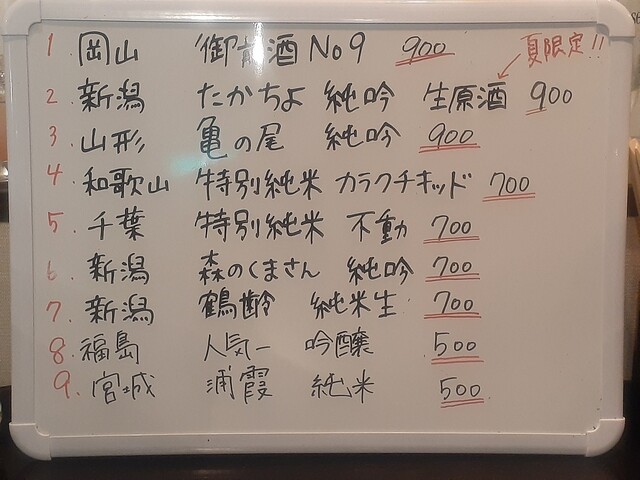 夏限定!!
1. 岡山 御前酒 No9 900
2. 新潟 たかちよ 純吟 生原酒 900
3. 山形 亀の尾 純吟 900
4. 和歌山 特別純米 カラクチキッド 700
5. 千葉 特別純米 不動 700
6. 新潟 森のくまさん 純吟 700
7. 新潟 鶴齢 純米生 700
8. 福島 人気一 吟醸 500
9. 宮城 浦霞 純米 500